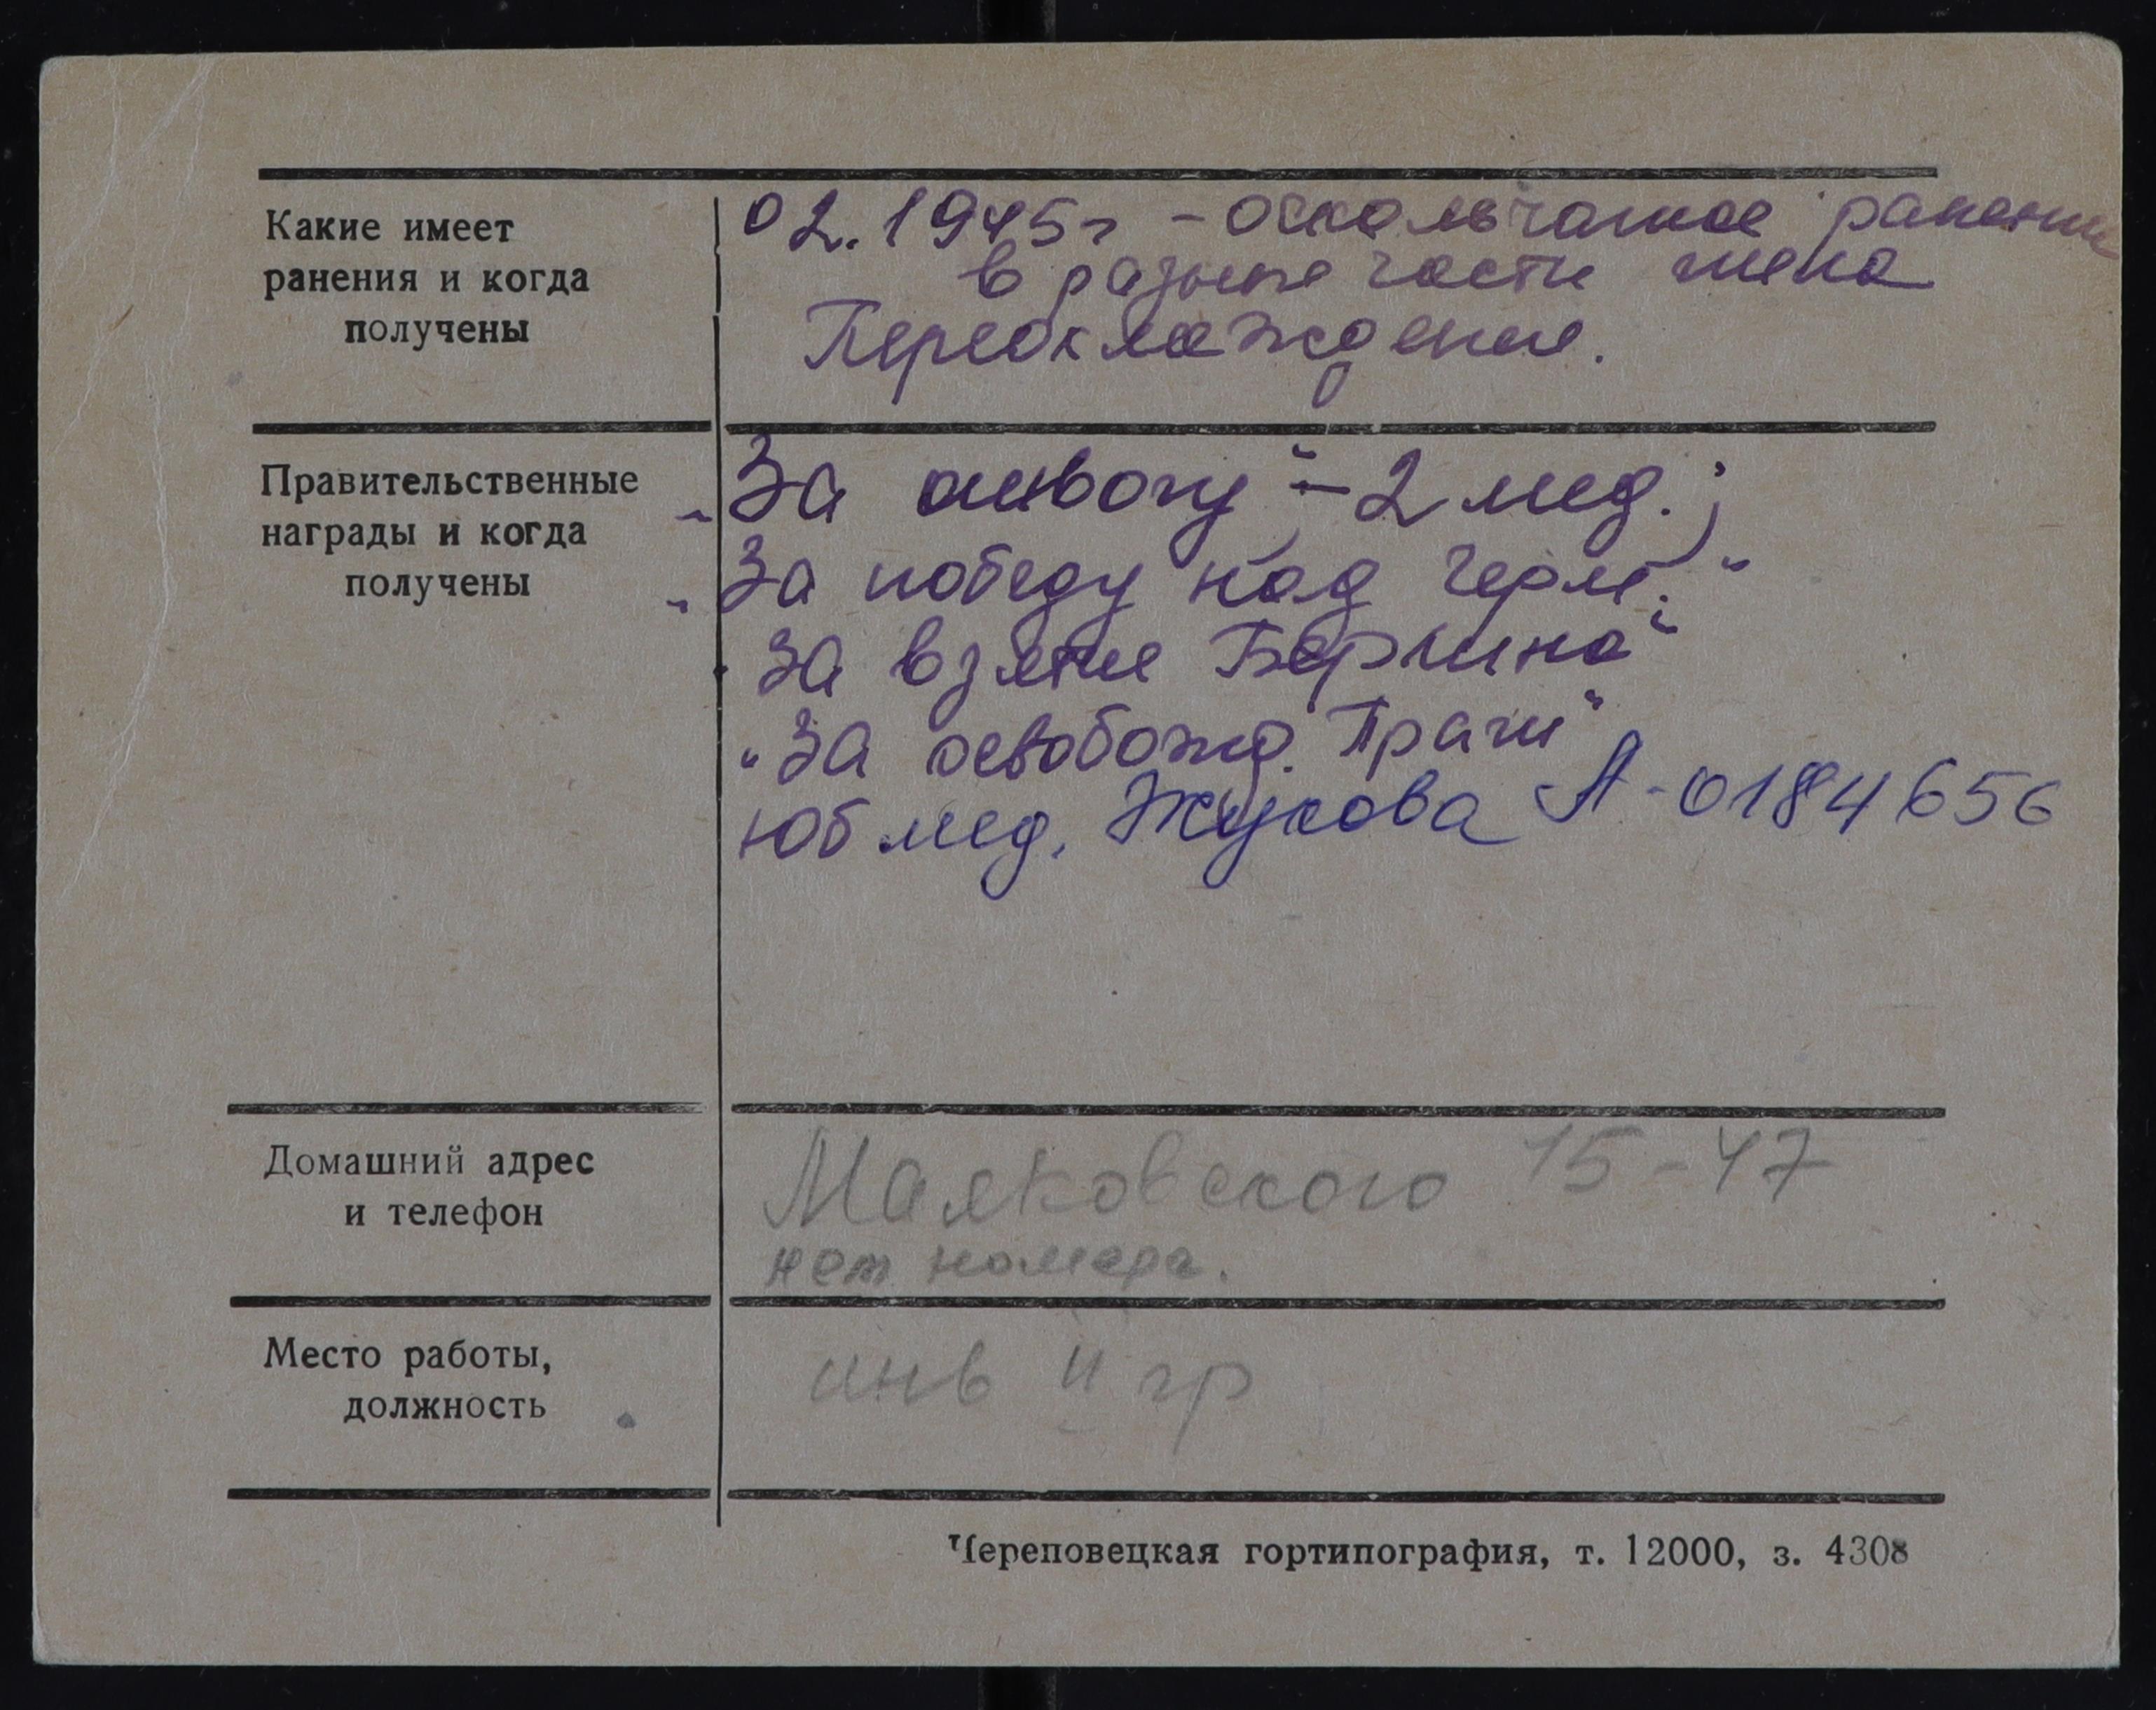 Какие имеет
ранения и когда
получены
02.1945г - оскольчатое ранение
в разные части тела
Переохлаждение.
Правительственные
награды и когда
получены
„За отвагу“ - 2 мед.;
„За победу над Герм.“
„За взятие Берлина“
„За освобожд. Праги“
юб мед. Жукова А-0184656
Домашний адрес
и телефон
Маяковского 15-47
нет номера.
Место работы,
должность
инв II гр
Череповецкая гортипография, т. 12000, з. 4308